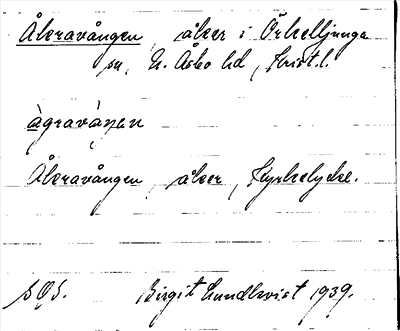 Åkravången, åker i Örkelljunga
sn, N. Åsbo hd, Krist. l.
àgraváŋen
Åkravången, åker, Kyrkelycke.
SOS. Birgit Lundkvist 1939.